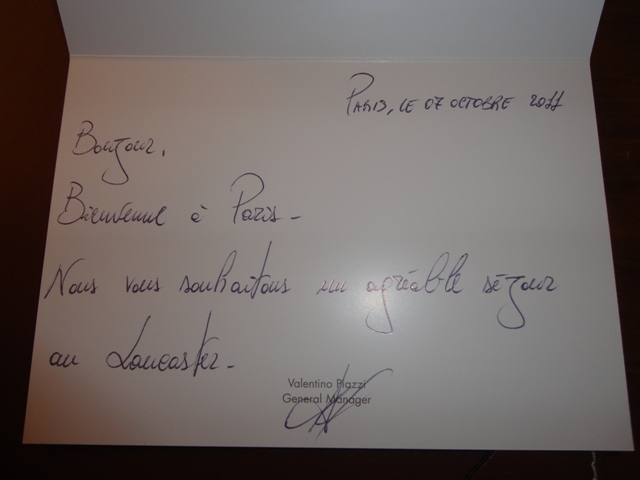 PARIS, LE 07 OCTOBRE 2011
Bonjour,
Bienvenue à Paris -
Nous vous souhaitons un agréable séjour
au Lancaster -
Valentino Piazzi
General Manager